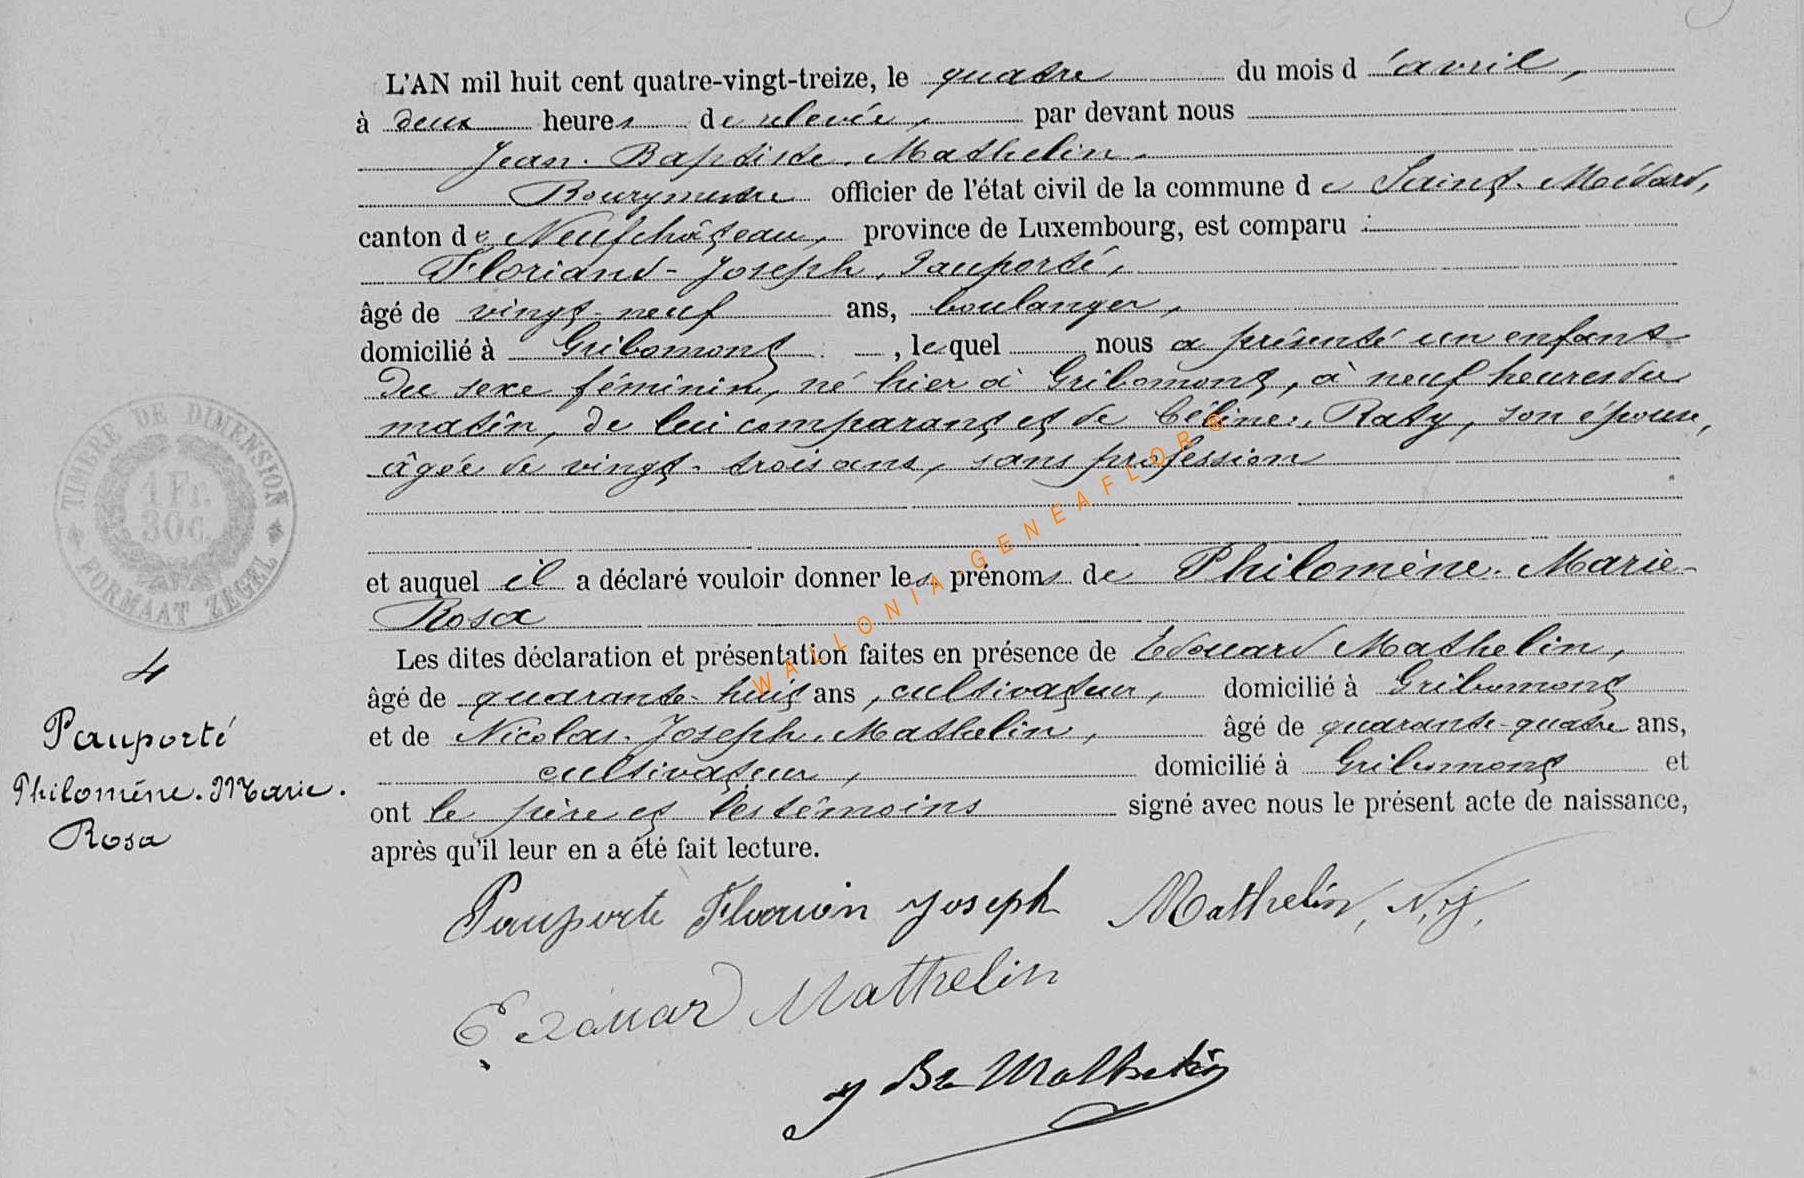 L'AN mil huit cent quatre-vingt-treize, le quatre du mois d'avril,
à deux heures de relevée, par devant nous
Jean-Baptiste Mathelin
Bourgmestre officier de l'état civil de la commune de Saint-Médard,
canton de Neufchâteau, province de Luxembourg, est comparu :
Floriand-Joseph Pauporté,
âgé de vingt-neuf ans, boulanger,
domicilié à Gribomont —, lequel nous a présenté un enfant
du sexe féminin, né hier à Gribomont, à neuf heures du
matin, de lui comparant et de Céline Raty, son épouse,
âgée de vingt-trois ans, sans profession
et auquel il a déclaré vouloir donner les prénoms de Philomène-Marie-
Rosa
Les dites déclaration et présentation faites en présence de Edouard Mathelin,
âgé de quarante-huit ans, cultivateur, domicilié à Gribomont
et de Nicolas-Joseph Mathelin, âgé de quarante-quatre ans,
cultivateur, domicilié à Gribomont et
ont le père et les témoins signé avec nous le présent acte de naissance,
après qu'il leur en a été fait lecture.
TIMBRE DE DIMENSION
1 Fr.
30 c.
FORMAAT ZEGEL
4
Pauporté
Philomène-Marie-
Rosa
Pauporte Florion Joseph Mathelin, N. J.
Edouard Mathelin
J Bte Mathelin
WALLONIA-GENEAFLOR®